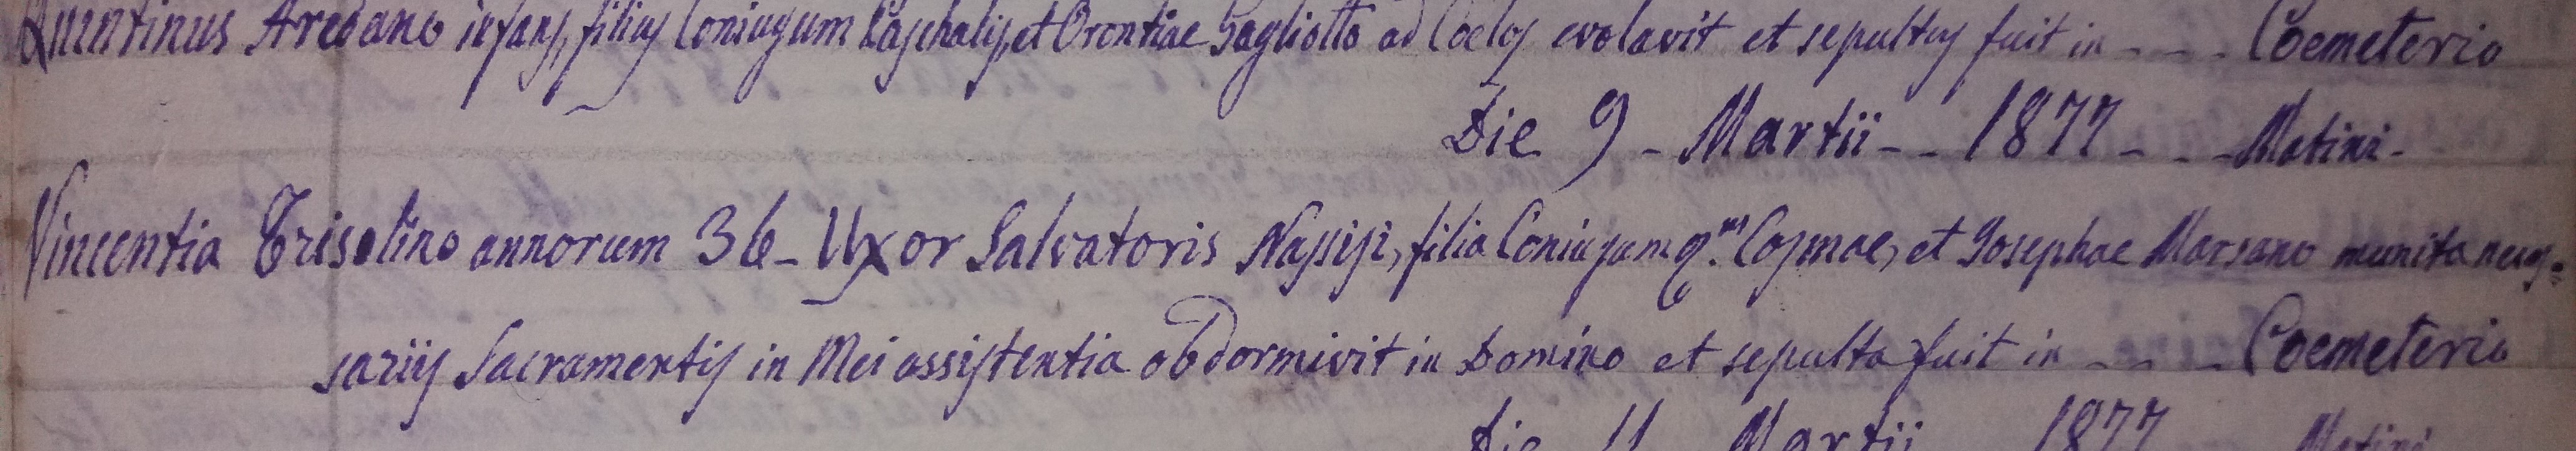 Quintinus Aredano infans, filius Coniugum Paschalis, et Orontiae Gagliotto ad Coelos evolavit et sepultus fuit in - - - Coemeterio
Die 9 - Martii - - 1877 - - - Matini -
Vincentia Trisolino annorum 36 - Uxor Salvatoris Nassisi, filia Coniugum q.m Cosmae, et Josephae Marsano munita neces=
sariis Sacramentis in Mei assistentia obdormivit in Domino et sepulta fuit in - - - Coemeterio
Die 11 Martii 1877 Matini